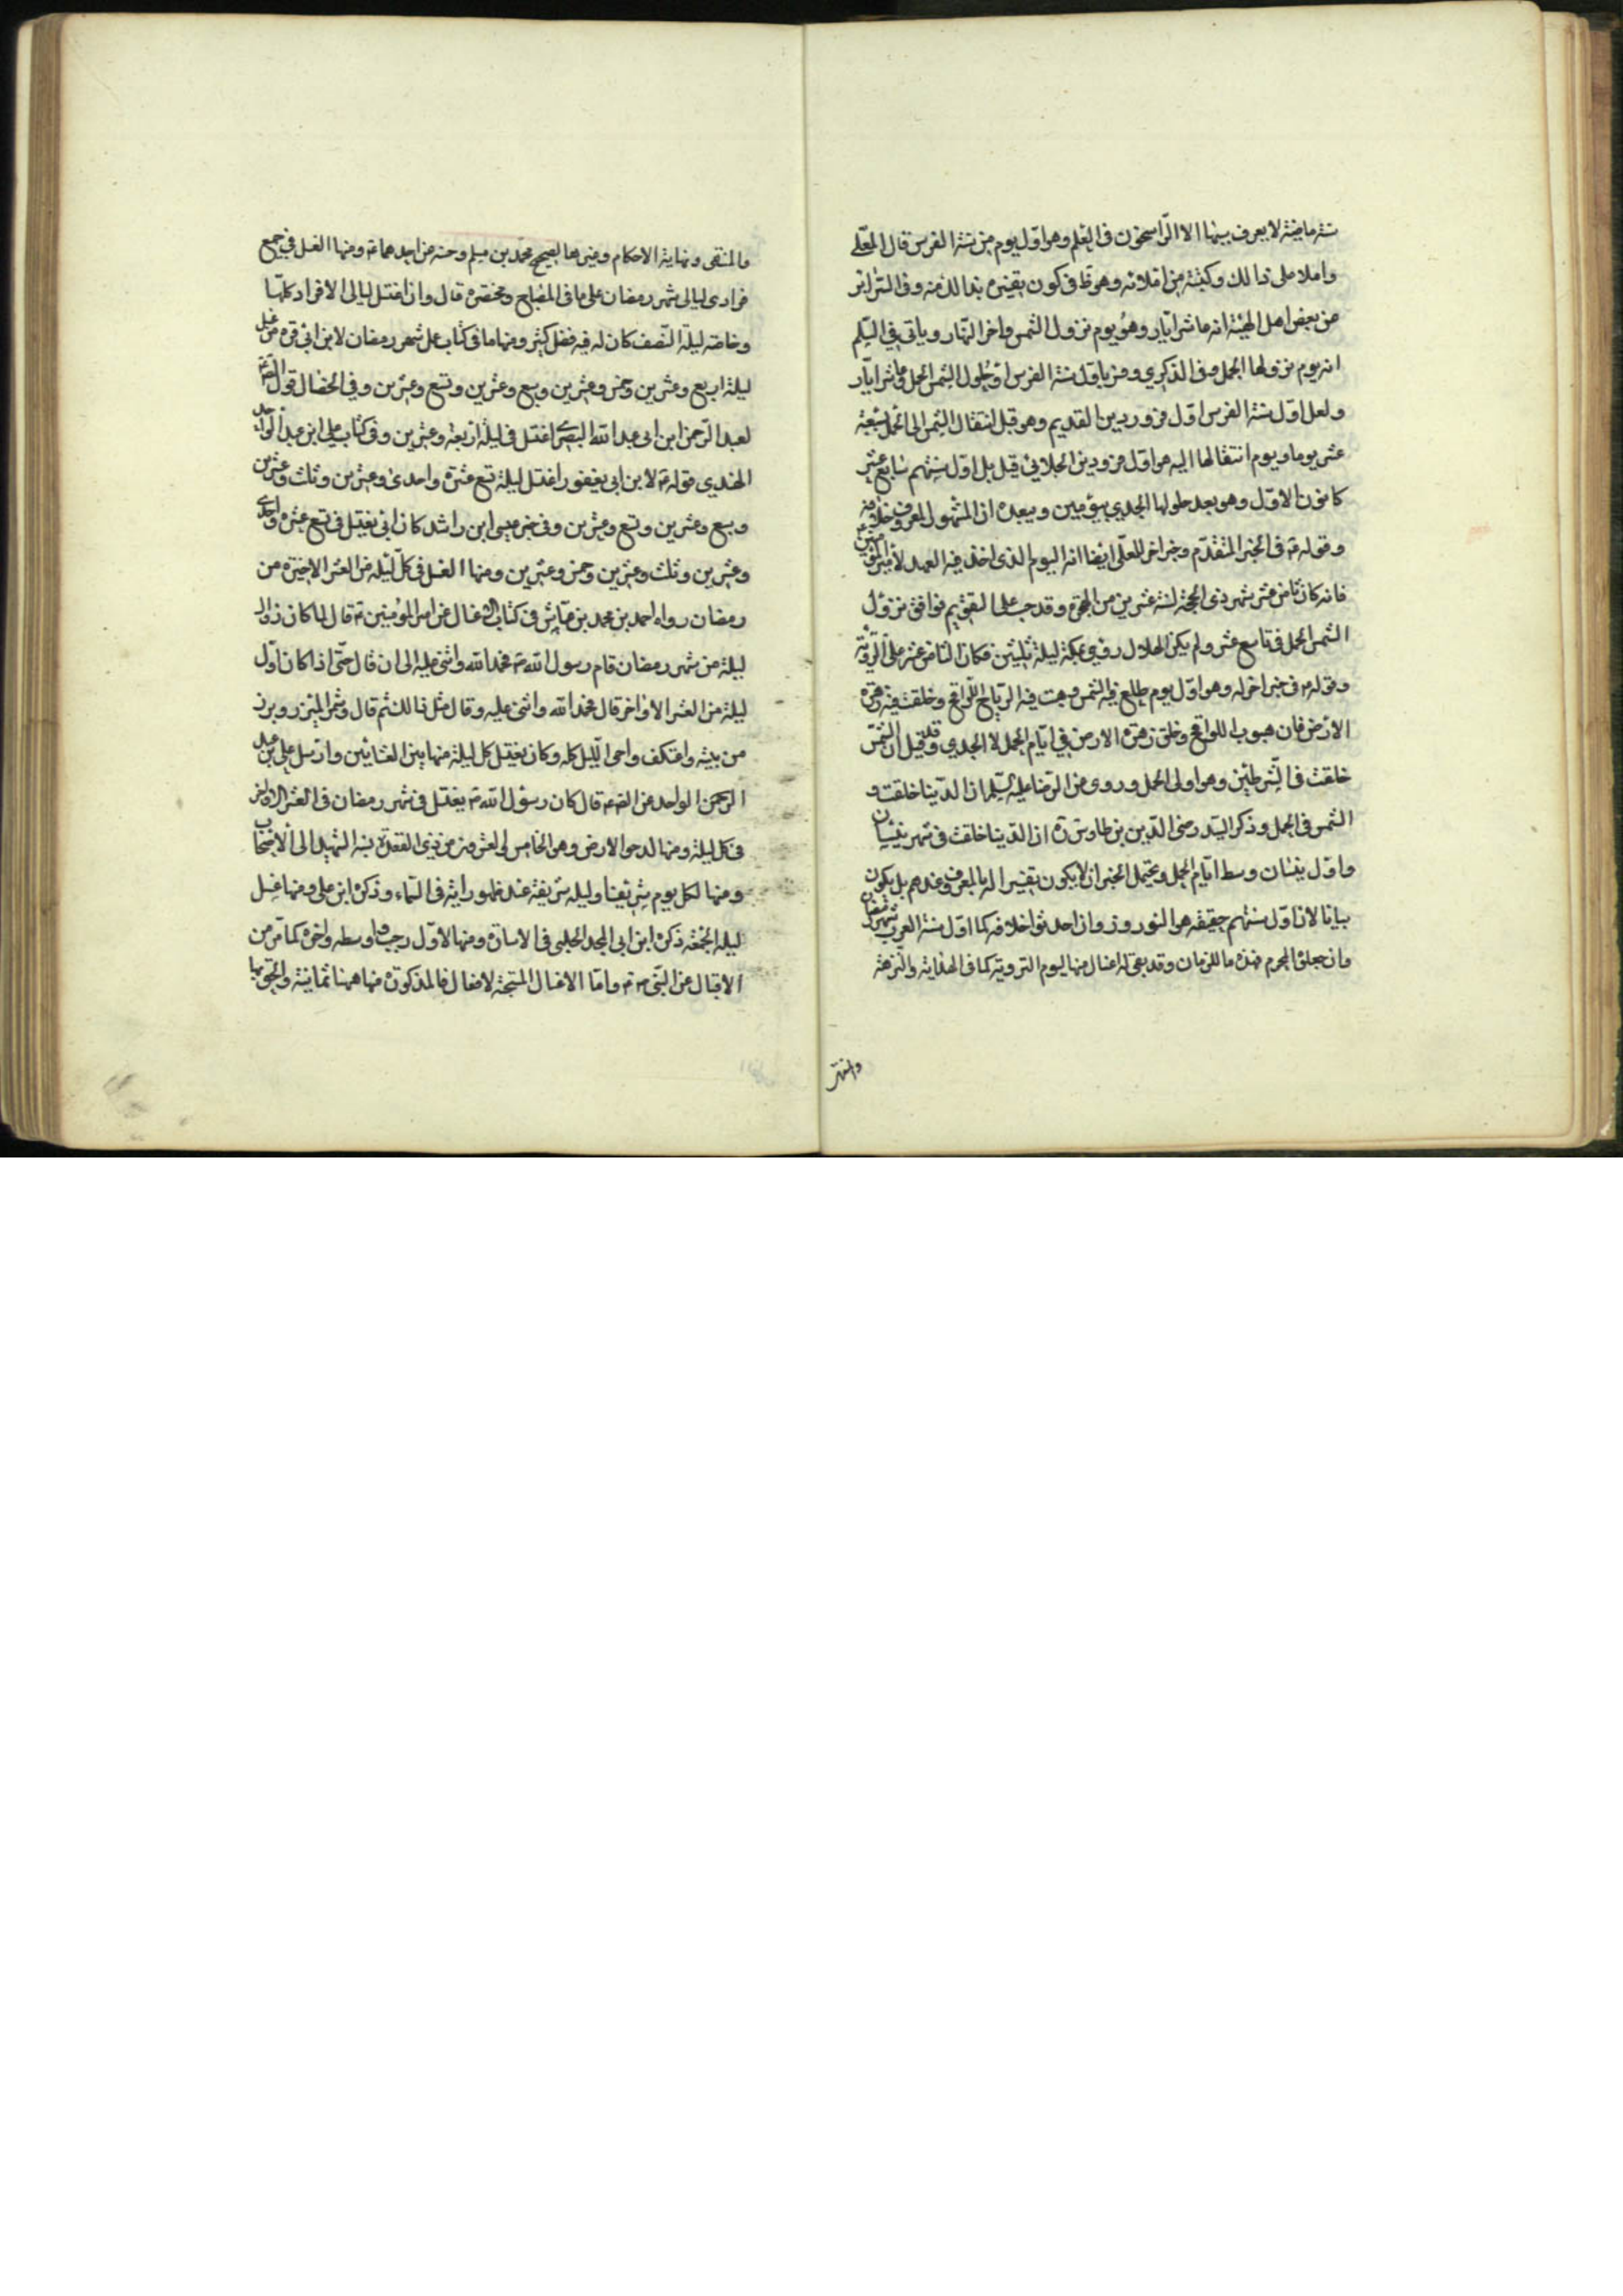 سنة ماضية لا يعرف سببها الا الراسخون في العلم وهو اول يوم من سنة الفرس قال المعلى
واملا على ذالك وكتبته من املائه وهو ظ في كون تفسيره بذالك منه وفي السرائر
عن بعض اهل الهيئة انه عاشر ايار وهو يوم نزول الشمس واخر النهار وياتي في السلم
انه يوم نزولها الحمل وفي الذكري وفسر باول سنة الفرس او حلول الشمس الحمل او عاشر ايار
ولعل اول سنة الفرس اول فروردين القديم وهو قبل انتقال الشمس الى الحمل بسبعة
عشر يوما ويوم انتقالها اليه هو اول فروردين الجلالي قيل بل اول سنتهم سابع عشر
كانون الاول وهو بعد حلولها الجدي بيومين ويبعده ان المشهور المعروف خلافه
وقوله ع في الخبر المتقدم وخبر اخر للمعلى ايضا انه اليوم الذي اخذ فيه العهد لامير المؤمنين
فانه كان ثامن عشر شهر ذي الحجة لسنة عشر من الهجرة وقد حسب علما التقويم فوافق نزول
الشمس الحمل في تاسع عشر ولم يكن الهلال رؤي بمكة ليلة ثلثين فكان الثامن عشر على الرؤية
وقوله ع في خبر اخر له وهو اول يوم طلع فيه الشمس وهبت فيه الرياح اللواقح وخلقت فيه زهرة
الارض فان هبوب اللواقح وخلق زهرة الارض في ايام الحمل لا الجدي وقد قيل ان الشمس
خلقت في الشرطين وهو اولى الحمل وروى عن الرضا عليه السلم ان الدنيا خلقت و
الشمس في الحمل وذكر السيد رضى الدين بن طاوس ره ان الدنيا خلقت في شهر نيسان
واول نيسان وسط ايام الحمل ويحتمل الخبر ان لا يكون تفسيرا له بالمعروف عندهم بل يكون
بيانا لان اول سنتهم حقيقه هو النوروز وان احدثوا خلافه كما اول سنة العرب شهر رمضان
وان جعلوه المحرم فهذه ما للزمان وقد بقى له اغسال منها ليوم التروية كما في الهداية والنزهة
والمنتهى
والمنتهى ونهاية الاحكام وغيرها لصحيح محمد بن مسلم وحسنه عن احدهما ع ومنها الغسل في جميع
فرادى ليالي شهر رمضان على ما في المصباح ومختصره قال وان اغتسل ليالي الافراد كلها
وخاصة ليلة النصف كان له فيه فضل كثير ومنها ما في كتاب عمل شهر رمضان لابن ابي قره من غسل
ليلة اربع وعشرين وخمس وعشرين وسبع وعشرين وتسع وعشرين وفي الخصال قول الص ع
لعبد الرحمن ابن ابي عبد الله البصري اغتسل في ليلة اربعة وعشرين وفي كتاب علي ابن عبد الواحد
الهندي قوله ع لابن ابي يعفور اغتسل ليلة تسع عشرة واحدى وعشرين وثلث وعشرين
وسبع وعشرين وتسع وعشرين وفي خبر عيسى ابن راشد كان ابي يغتسل في تسع عشرة واحدى
وعشرين وثلث وعشرين وخمس وعشرين ومنها الغسل في كل ليلة من العشر الاخيرة من
رمضان رواه احمد بن محمد بن عياش في كتاب الاغسال عن امير المؤمنين ع قال لما كان اول
ليلة من شهر رمضان قام رسول الله ص فحمد الله واثنى عليه الى ان قال حتى اذا كان اول
ليلة من العشر الاواخر قام فحمد الله واثنى عليه وقال مثل ذالك ثم قال وشمر الميزر وبرز
من بيته واعتكف واحى الليل كله وكان يغتسل كل ليلة منها بين العشائين وارسل علي بن عبد
الواحد عن الص ع قال كان رسول الله ص يغتسل في شهر رمضان في العشر الاواخر
في كل ليلة ومنها لدحو الارض وهو الخامس والعشرين من ذي القعدة نسبه الشهيد الى الاصحاب
ومنها لكل يوم شريف او ليلة شريفة عند ظهور اية في السماء وذكره ابن علي ومنها غسل
ليلة الجمعة ذكره ابن ابي المجد الحلبي في الاشارة ومنها لاول رجب واوسطه واخره كما مر من
الاقبال عن النبي ص واما الاغسال المستحبة لافعال فالمذكورة منها ههنا ثمانية